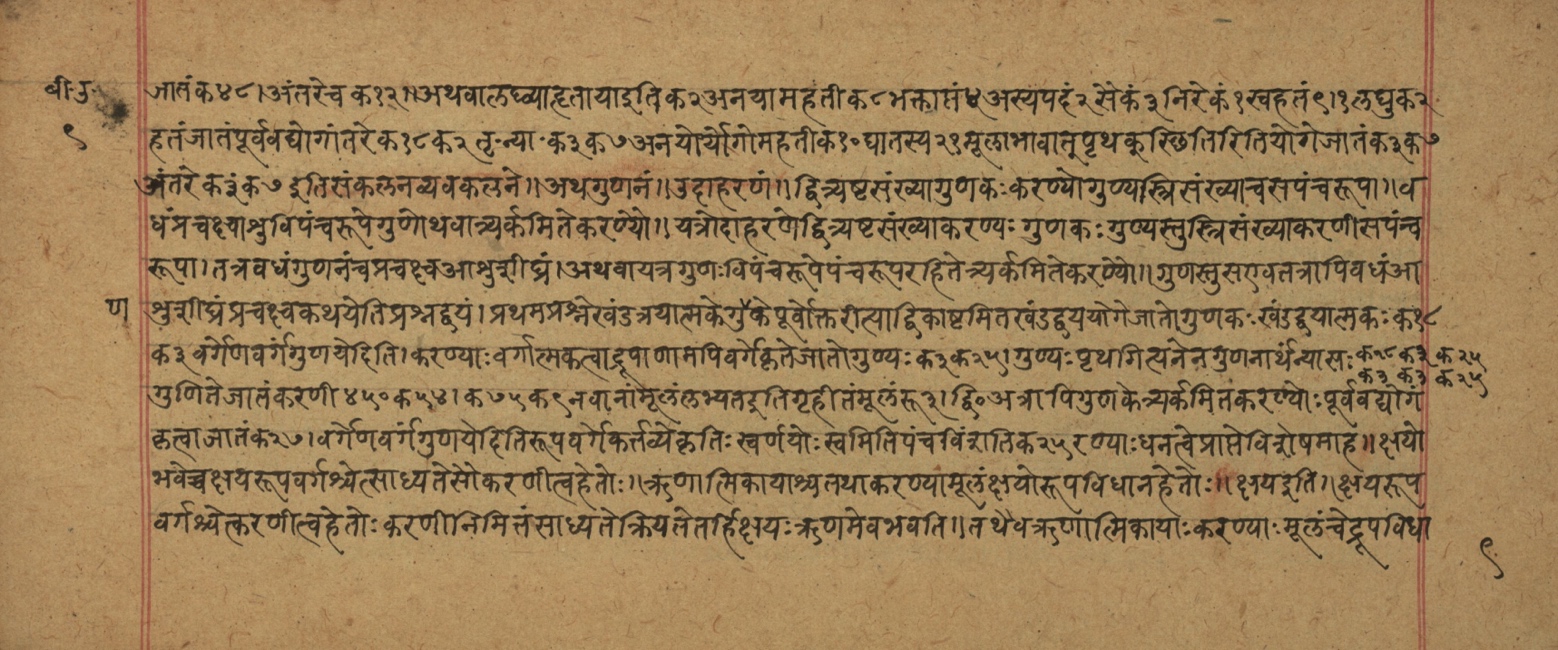 बी॰उ॰
९
जातंक४८।अंतरेचक१२॥अथवालघ्व्याहृतायाइतिक२अनयामहतीक८भक्तासं४अस्यपदं२सेकं३निरेकं१स्वहतं९।१लघुक२
हतंजातंपूर्ववद्योगांतरेक१८क२तृ॰न्या॰क३क७अनयोर्योगोमहतीक१०घातस्य२१मूलाभावात्तुपृथक्स्थितिरितियोगेजातंक३क७
अंतरेक३ंक७इतिसंकलनव्यवकलने॥अथगुणनं॥उदाहरणं॥द्वित्र्यष्टसंख्यागुणकःकरण्योगुण्यस्त्रिसंख्याचसपंचरूपा॥व
धंप्रचक्ष्वाशुविपंचरूपेगुणोथवात्र्यर्कमितेकरण्यौ॥यत्रोदाहरणेद्वित्र्यष्टसंख्याकरण्यःगुणकःगुण्यस्तुत्रिसंख्याकरणीसपंच
रूपा।तत्रवधंगुणनंचप्रचक्ष्वआशुशीघ्रं।अथवायत्रगुणःविपंचरूपेपंचरूपरहितेत्र्यर्कमितेकरण्यौ॥गुणस्तुसएवतत्रापिवधंआ
शुशीघ्रंप्रचक्ष्वकथयेतिप्रश्नद्वयं।प्रथमप्रश्नेखंडत्रयात्मकेगुकेपूर्वोक्तरीत्याद्विकाष्टमितखंडद्वययोगेजातोगुणकःखंडद्वयात्मकःक१८
ण
क३वर्गेणवर्गंगुणयेदिति।करण्याःवर्गात्मकत्वाद्रूपाणामपिवर्गेकृतेजातोगुण्यःक३क२५।गुण्यःपृथगित्यनेनगुणनार्थंन्यासःक१८क३क२५
क३क३क२५
गुणितेजातंकरणी४५०क५४।क७५क९नवानांमूलंलभ्यतइतिगृहीतंमूलंरू३।द्वि॰अत्रापिगुणकेत्र्यर्कमितकरण्योःपूर्ववद्योगं
कृत्वाजातंक२७।वर्गेणवर्गंगुणयेदितिरूपवर्गेकर्त्तव्येकृतिःस्वर्णयोःस्वमितिपंचविंशतिक२५रण्याःधनत्वेप्राप्तेविशेषमाह॥क्षयो
भवेच्चक्षयरूपवर्गश्चेत्साध्यतेसौकरणीत्वहेतोः॥ऋणात्मिकायाश्चतथाकरण्यामूलंक्षयोरूपविधानहेतोः॥क्षयइति॥क्षयरूप
वर्गश्चेत्करणीत्वहेतोःकरणीनिमित्तंसाध्यतेक्रियतेतर्हिक्षयःऋणमेवभवति॥तथैवऋणात्मिकायाःकरण्याःमूलंचेद्रूपविधा
९